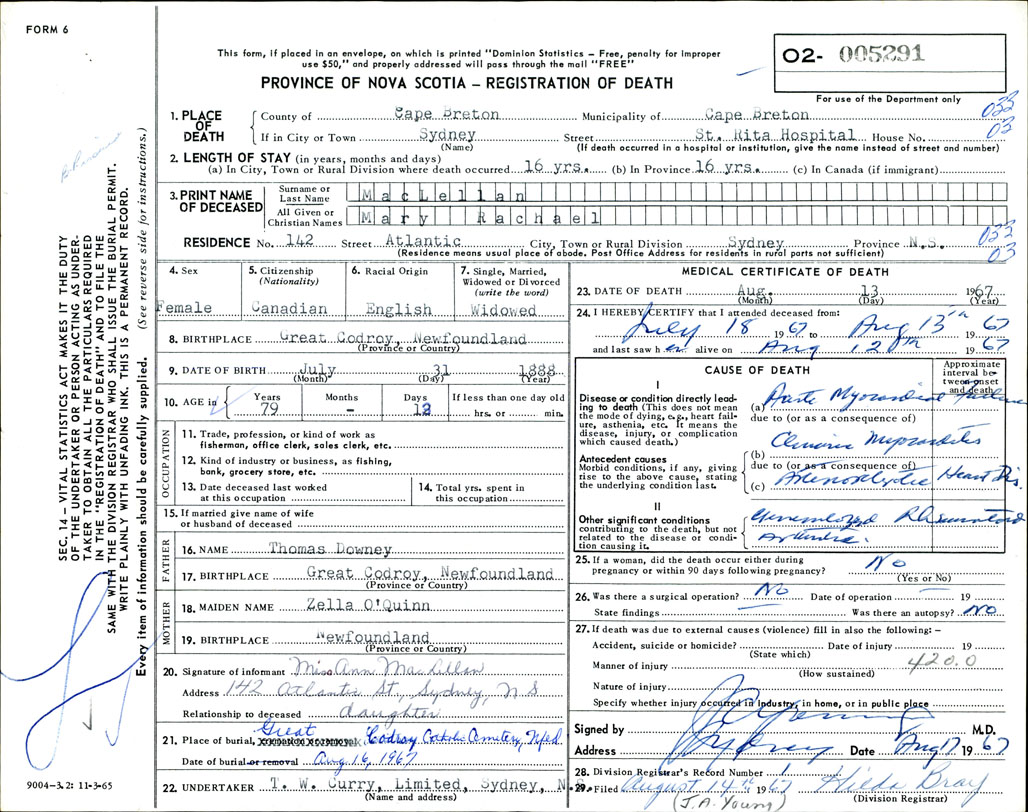 FORM 6
This form, if placed in an envelope, on which is printed "Dominion Statistics – Free, penalty for improper
use $50," and properly addressed will pass through the mail "FREE"
PROVINCE OF NOVA SCOTIA – REGISTRATION OF DEATH
02- 005291
For use of the Department only
1. PLACE OF DEATH
County of Cape Breton Municipality of Cape Breton 033
If in City or Town Sydney Street St. Rita Hospital House No. 03
(Name) (If death occurred in a hospital or institution, give the name instead of street and number)
2. LENGTH OF STAY (in years, months and days)
(a) In City, Town or Rural Division where death occurred 16 yrs. (b) In Province 16 yrs. (c) In Canada (if immigrant)
3. PRINT NAME OF DECEASED
Surname or Last Name MacLellan
All Given or Christian Names Mary Rachael
RESIDENCE No. 142 Street Atlantic City, Town or Rural Division Sydney Province N.S. 033 03
(Residence means usual place of abode. Post Office Address for residents in rural parts not sufficient)
4. Sex
Female
5. Citizenship (Nationality)
Canadian
6. Racial Origin
English
7. Single, Married, Widowed or Divorced (write the word)
Widowed
8. BIRTHPLACE Great Codroy, Newfoundland
(Province or Country)
9. DATE OF BIRTH July 31 1888
(Month) (Day) (Year)
10. AGE in
Years 79
Months -
Days 12
If less than one day old
hrs. or min.
OCCUPATION
11. Trade, profession, or kind of work as
fisherman, office clerk, sales clerk, etc.
12. Kind of industry or business, as fishing,
bank, grocery store, etc.
13. Date deceased last worked
at this occupation
14. Total yrs. spent in
this occupation
15. If married give name of wife
or husband of deceased
FATHER
16. NAME Thomas Downey
17. BIRTHPLACE Great Codroy, Newfoundland
(Province or Country)
MOTHER
18. MAIDEN NAME Zella O'Quinn
19. BIRTHPLACE Newfoundland
(Province or Country)
20. Signature of informant Miss Ann MacLellan
Address 142 Atlantic St., Sydney, N S
Relationship to deceased daughter
21. Place of burial, Great Codroy Catholic Cemetery, Nfld
Date of burial or removal Aug. 16, 1967
22. UNDERTAKER T. W. Curry, Limited, Sydney, N.S.
(Name and address)
MEDICAL CERTIFICATE OF DEATH
23. DATE OF DEATH Aug. 13 1967
(Month) (Day) (Year)
24. I HEREBY CERTIFY that I attended deceased from:
July 18 1967 to Aug 13th 1967
and last saw her alive on Aug 12th 1967
CAUSE OF DEATH
Approximate interval between onset and death
I
Disease or condition directly leading to death (This does not mean the mode of dying, e.g., heart failure, asthenia, etc. It means the disease, injury, or complication which caused death.)
(a) Acute Myocardial Failure
due to (or as a consequence of)
Antecedent causes
Morbid conditions, if any, giving rise to the above cause, stating the underlying condition last.
(b) Chronic Myocarditis
due to (or as a consequence of)
(c) Heart Dis.
II
Other significant conditions
contributing to the death, but not related to the disease or condition causing it.
Generalized Rheumatoid
Arthritis.
25. If a woman, did the death occur either during
pregnancy or within 90 days following pregnancy? No
(Yes or No)
26. Was there a surgical operation? No Date of operation 19
State findings Was there an autopsy? No
27. If death was due to external causes (violence) fill in also the following: –
Accident, suicide or homicide? Date of injury 19
(State which)
Manner of injury 420.0
(How sustained)
Nature of injury
Specify whether injury occurred in industry, in home, or in public place
Signed by M.D.
Address Sydney Date Aug 17 1967
28. Division Registrar's Record Number 1
29. Filed August 14th 1967 Hilda Bray
(J.A. Young) (Division Registrar)
SEC. 14 – VITAL STATISTICS ACT MAKES IT THE DUTY
OF THE UNDERTAKER OR PERSON ACTING AS UNDER-
TAKER TO OBTAIN ALL THE PARTICULARS REQUIRED
IN THE "REGISTRATION OF DEATH" AND TO FILE THE
SAME WITH THE DIVISION REGISTRAR WHO SHALL ISSUE THE BURIAL PERMIT.
WRITE PLAINLY WITH UNFADING INK. THIS IS A PERMANENT RECORD.
Every item of information should be carefully supplied. (See reverse side for instructions.)
9004-3.2: 11-3-65